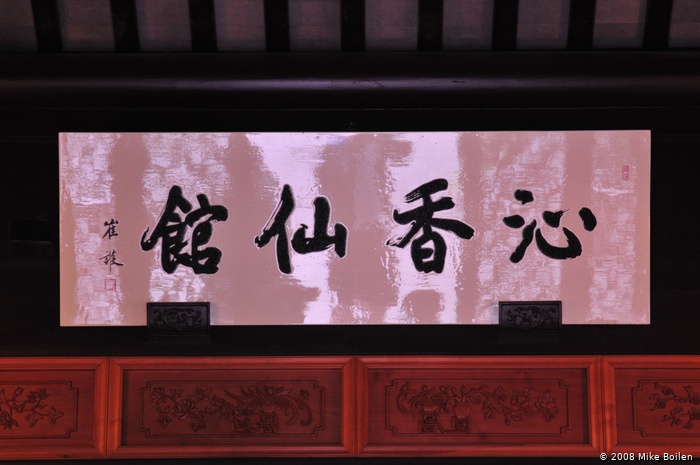 沁香仙館
崔護
© 2008 Mike Boilen